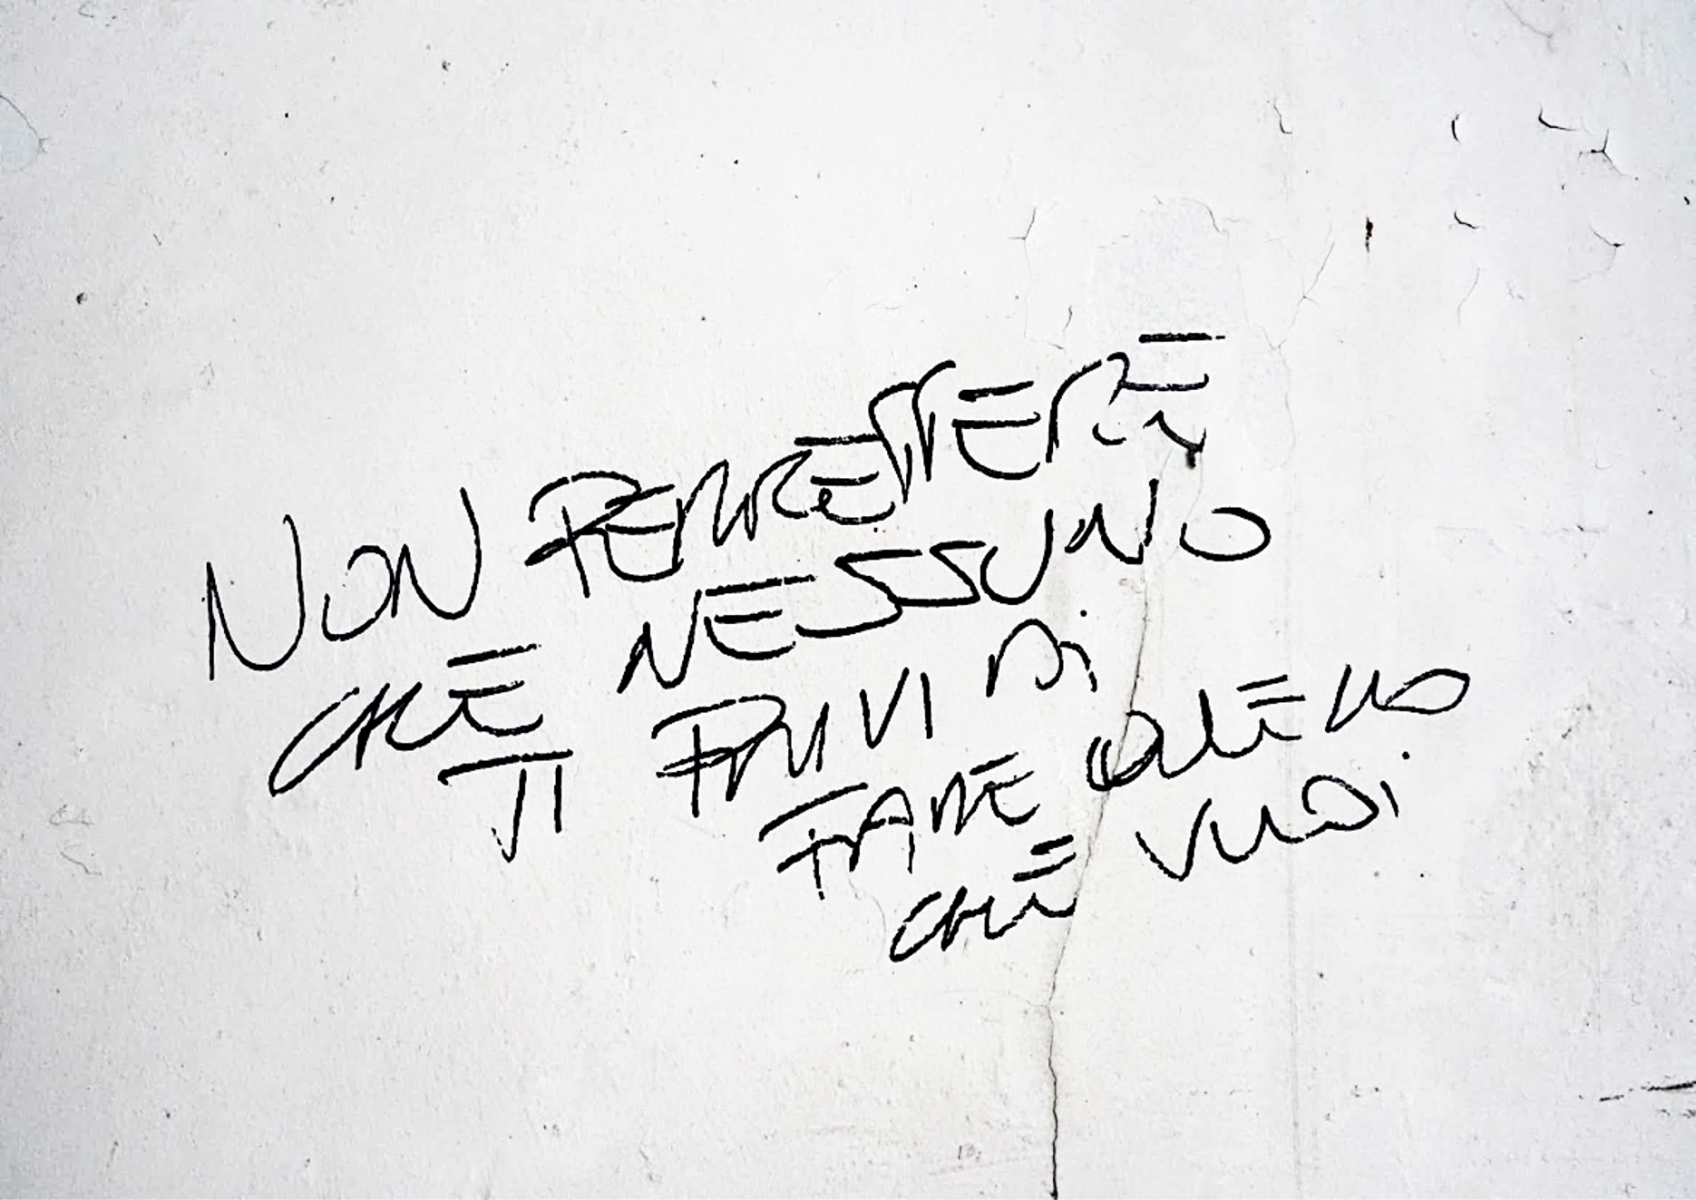 NON PERMETTERE
CHE NESSUNO
TI PRIVI Di
FARE QUELLO
CHE VUOi